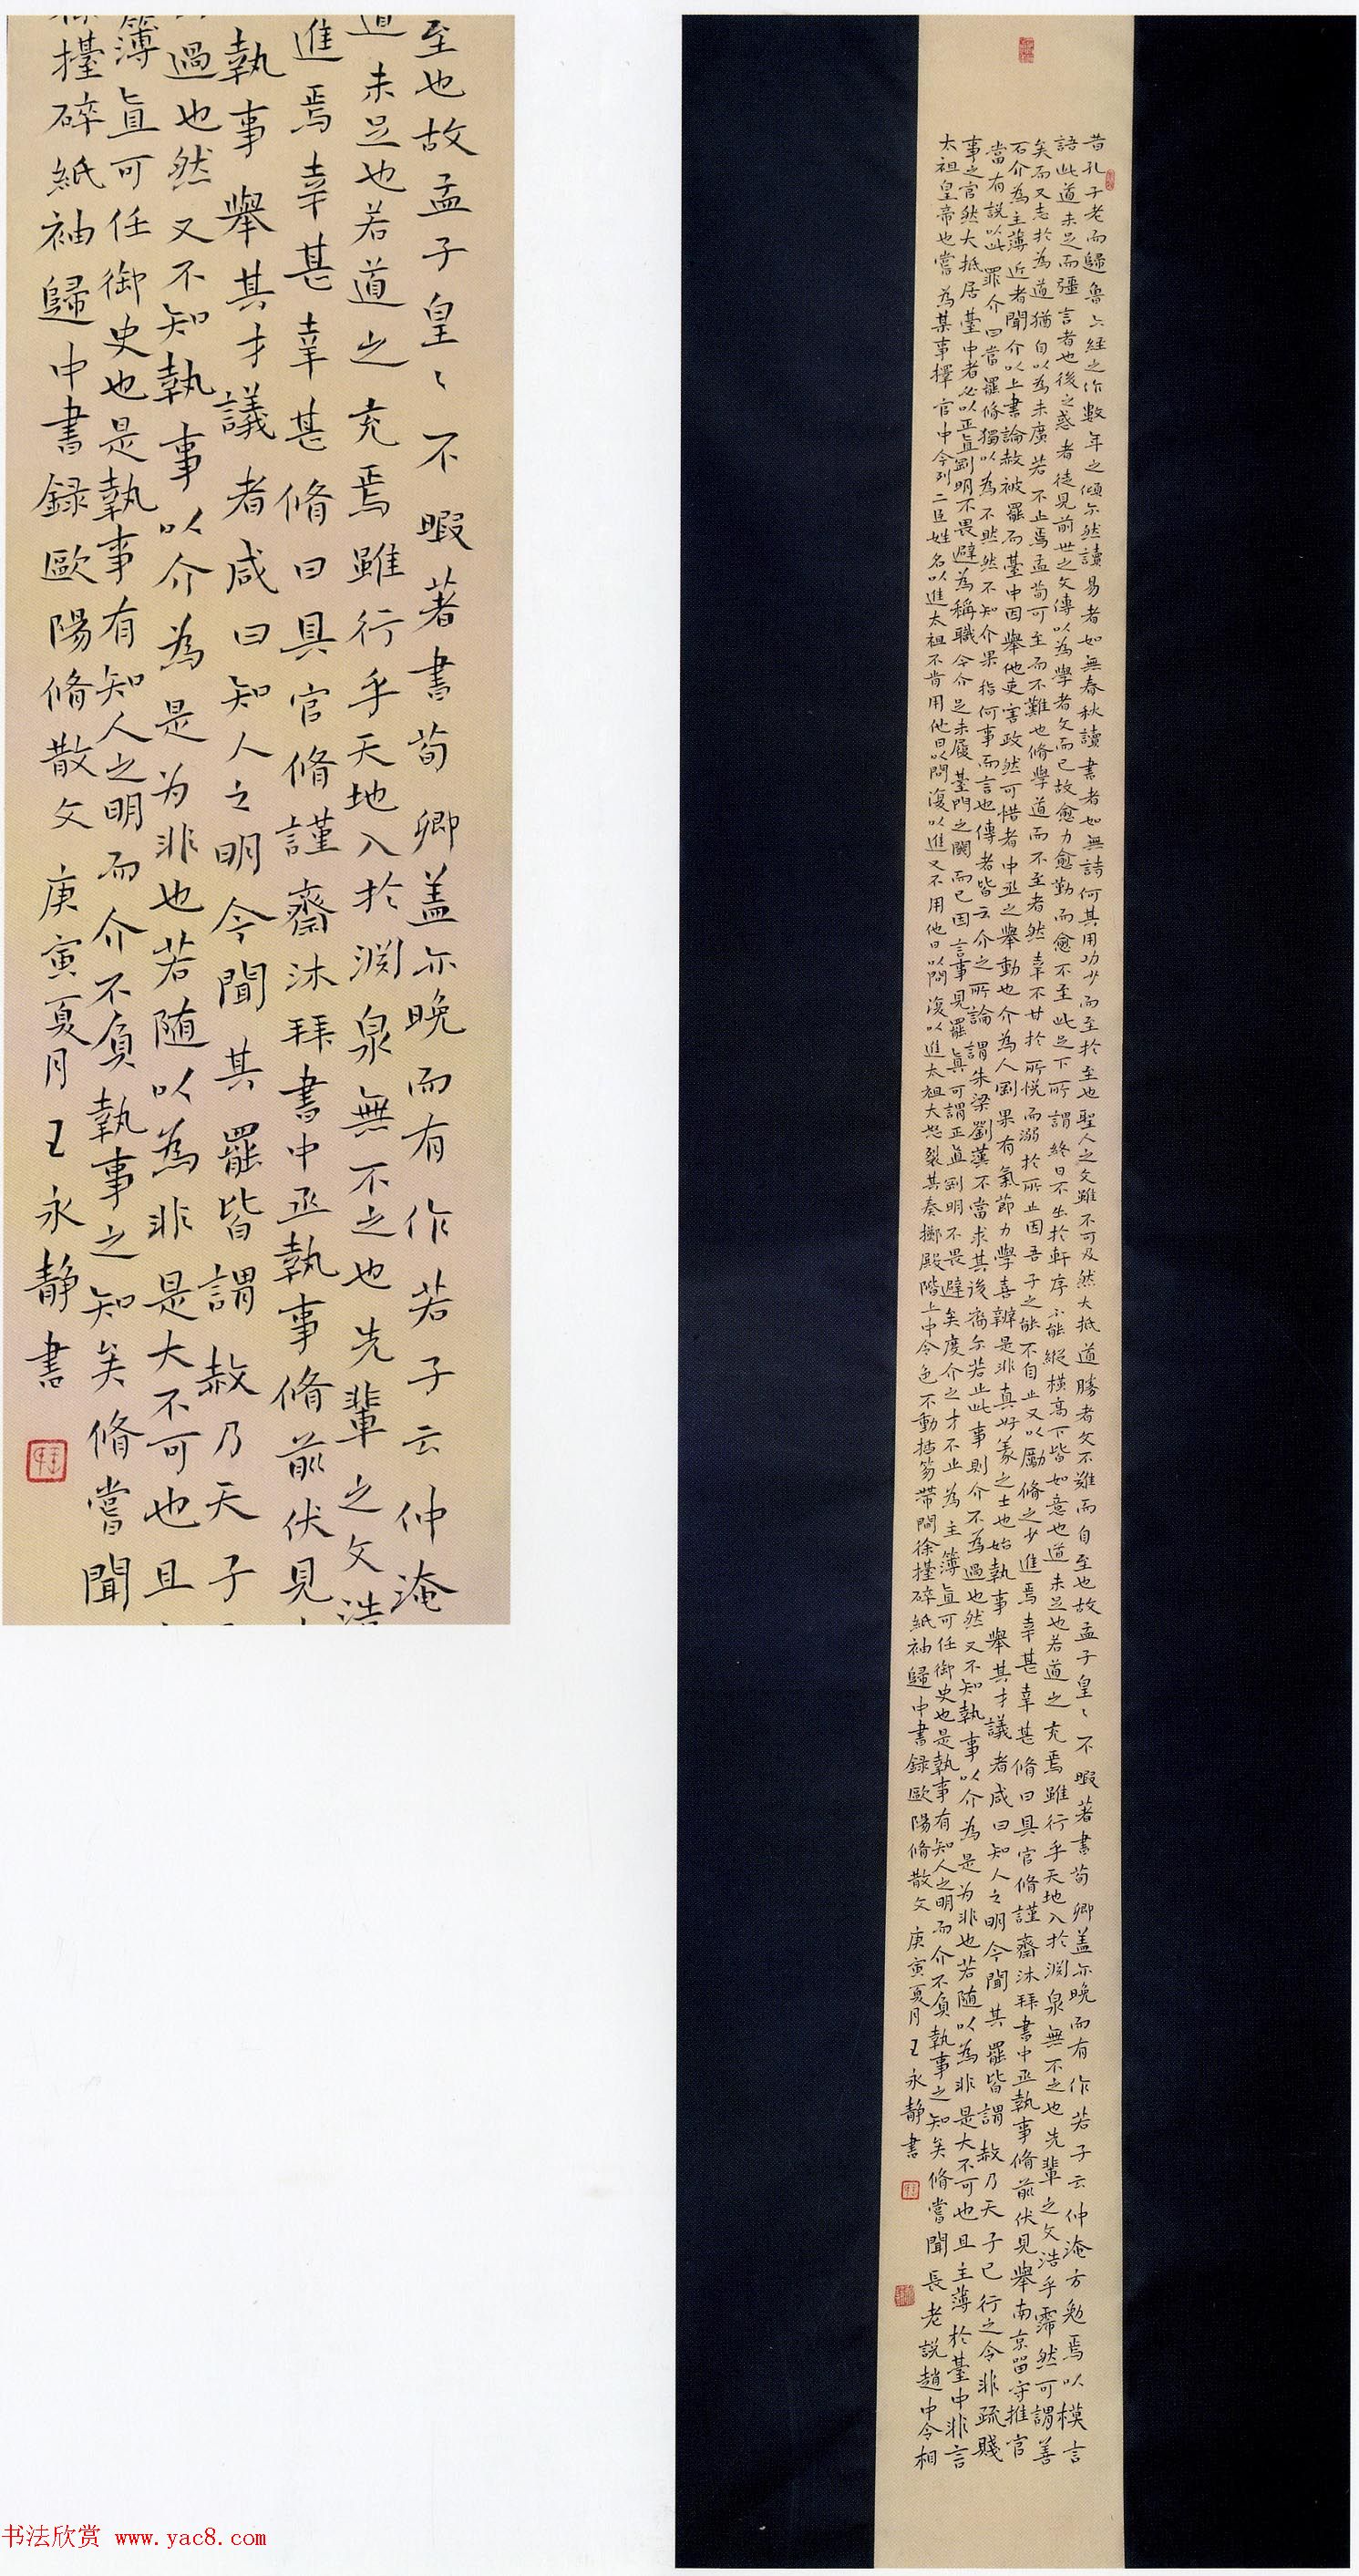 至也故孟子皇〻不暇著書荀卿蓋亦晚而有作若子云仲淹
道未足也若道之充焉雖行乎天地入於淵泉無不之也先輩之文浩
進焉幸甚幸甚脩曰具官脩謹齋沐拜書中丞執事脩前伏見
執事舉其才議者咸曰知人之明今聞其罷皆謂赦乃天子
過也然又不知執事以介為是为非也若随以為非是大不可也且
簿直可任御史也是執事有知人之明而介不負執事之知矣脩嘗聞
徐擡碎紙袖歸中書錄歐陽脩散文庚寅夏月王永靜書
昔孔子老而歸魯六經之作數年之頃尔然讀易者如無春秋讀書者如無詩何其用功少而至於至也聖人之文雖不可及然大抵道勝者文不難而自至也故孟子皇〻不暇著書荀卿蓋亦晚而有作若子云仲淹方勉焉以模言
語此道未足而彊言者也後之惑者徒見前世之文傳以為學者文而已故愈力愈勤而愈不至此足下所謂終日不出於軒序不能縱橫高下皆如意也道未足也若道之充焉雖行乎天地入於淵泉無不之也先輩之文浩乎霈然可謂善
矣而又志於為道猶自以為未廣若不止焉孟荀可至而不難也脩學道而不至者然幸不甘於所悅而溺於所止因吾子之能不自止又以勵脩之少進焉幸甚幸甚脩曰具官脩謹齋沐拜書中丞執事脩前伏見舉南京留守推官
石介為主薄近者聞介以上書論赦被罷而臺中因舉他吏害政然可惜者中丞之舉動也介為人剛果有氣節力學喜辨是非真好義之士也始執事舉其才議者咸曰知人之明今聞其罷皆謂赦乃天子已行之令非疏賤
當有說以此罪介曰當罷脩獨以為不然然不知介果指何事而言也傳者皆云介之所論謂朱梁劉漢不當求其後裔尔若止此事則介不為過也然又不知執事以介為是为非也若随以為非是大不可也且主薄於臺中非言
事之官然大抵居臺中者必以正直剛明不畏避為稱職今介足未履臺門之闕而已因言事見罷真可謂正直剛明不畏避矣度介之才不止為主簿直可任御史也是執事有知人之明而介不負執事之知矣脩嘗聞長老說趙中令相
太祖皇帝也嘗為某事擇官中令列二臣姓名以進太祖不肯用他日以問復以進又不用他日以問復以進太祖大怒裂其奏擲殿階上中令色不動插笏帶間徐擡碎紙袖歸中書錄歐陽脩散文庚寅夏月王永靜書
书法欣赏 www.yac8.com